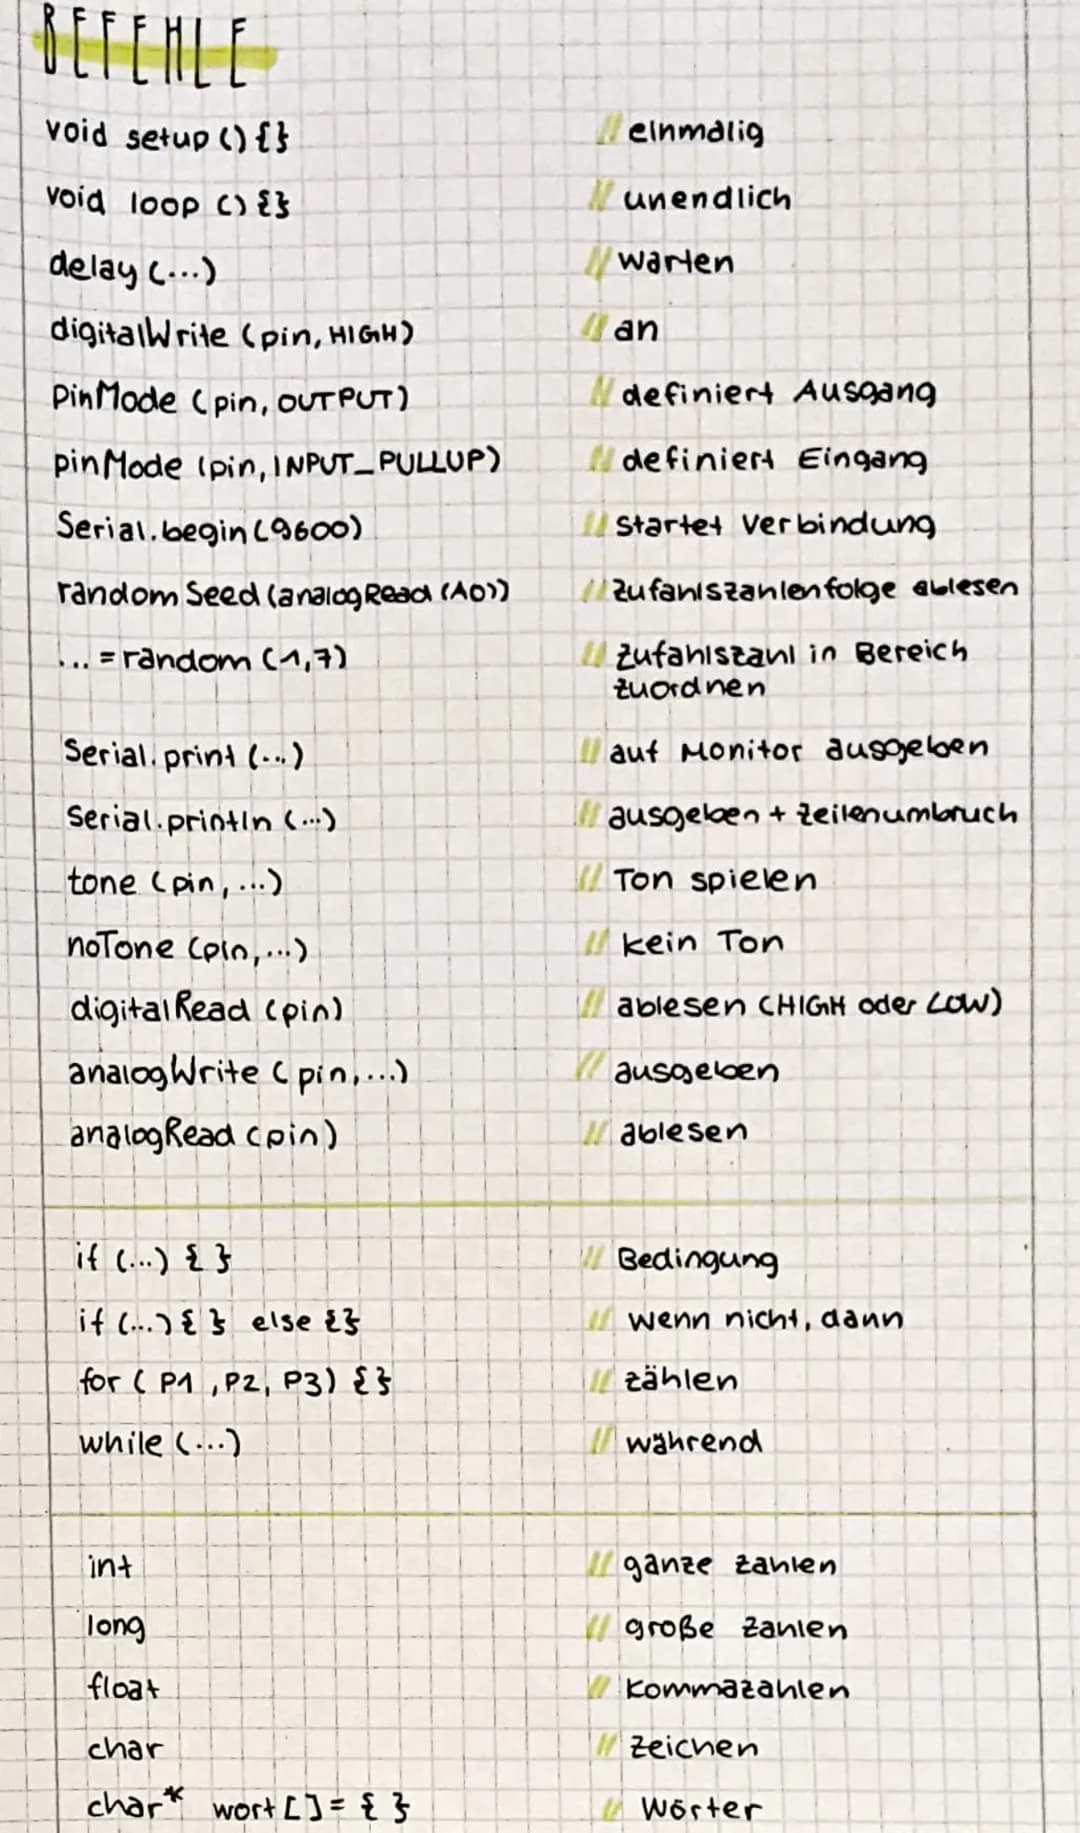 BEFEHLE
void setup () {} // einmalig
void loop () {} // unendlich
delay (...) // warten
digitalWrite (pin, HIGH) // an
pinMode (pin, OUTPUT) // definiert Ausgang
pinMode (pin, INPUT_PULLUP) // definiert Eingang
Serial.begin (9600) // startet Verbindung
randomSeed (analogRead (A0)) // Zufahlszahlenfolge ablesen
... = random (1,7) // Zufahlszahl in Bereich
zuordnen
Serial.print (...) // auf Monitor ausgeben
Serial.println (...) // ausgeben + Zeilenumbruch
tone (pin, ...) // Ton spielen
noTone (pin, ...) // kein Ton
digitalRead (pin) // ablesen (HIGH oder LOW)
analogWrite (pin, ...) // ausgeben
analogRead (pin) // ablesen
if (...) { } // Bedingung
if (...) { } else {} // wenn nicht, dann
for ( P1 , P2, P3) {} // zählen
while (...) // während
int // ganze Zahlen
long // große Zahlen
float // Kommazahlen
char // Zeichen
char* wort [] = { } // Wörter